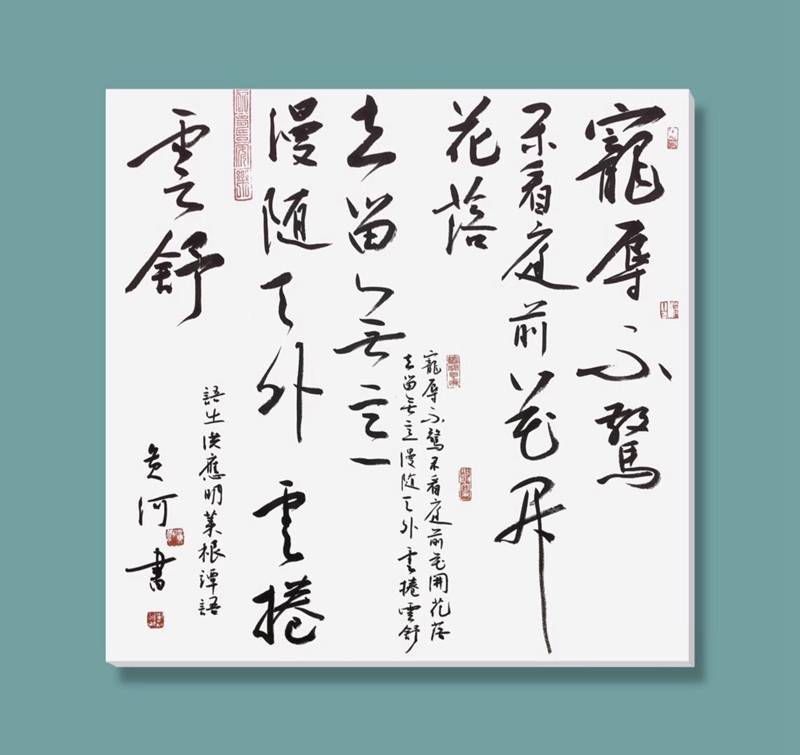 寵辱不驚
閑看庭前花開
花落
去留無意
漫随天外雲捲
雲舒
寵辱不驚閑看庭前花開花落
去留無意漫随天外雲捲雲舒
語出洪應明菜根譚語
河書